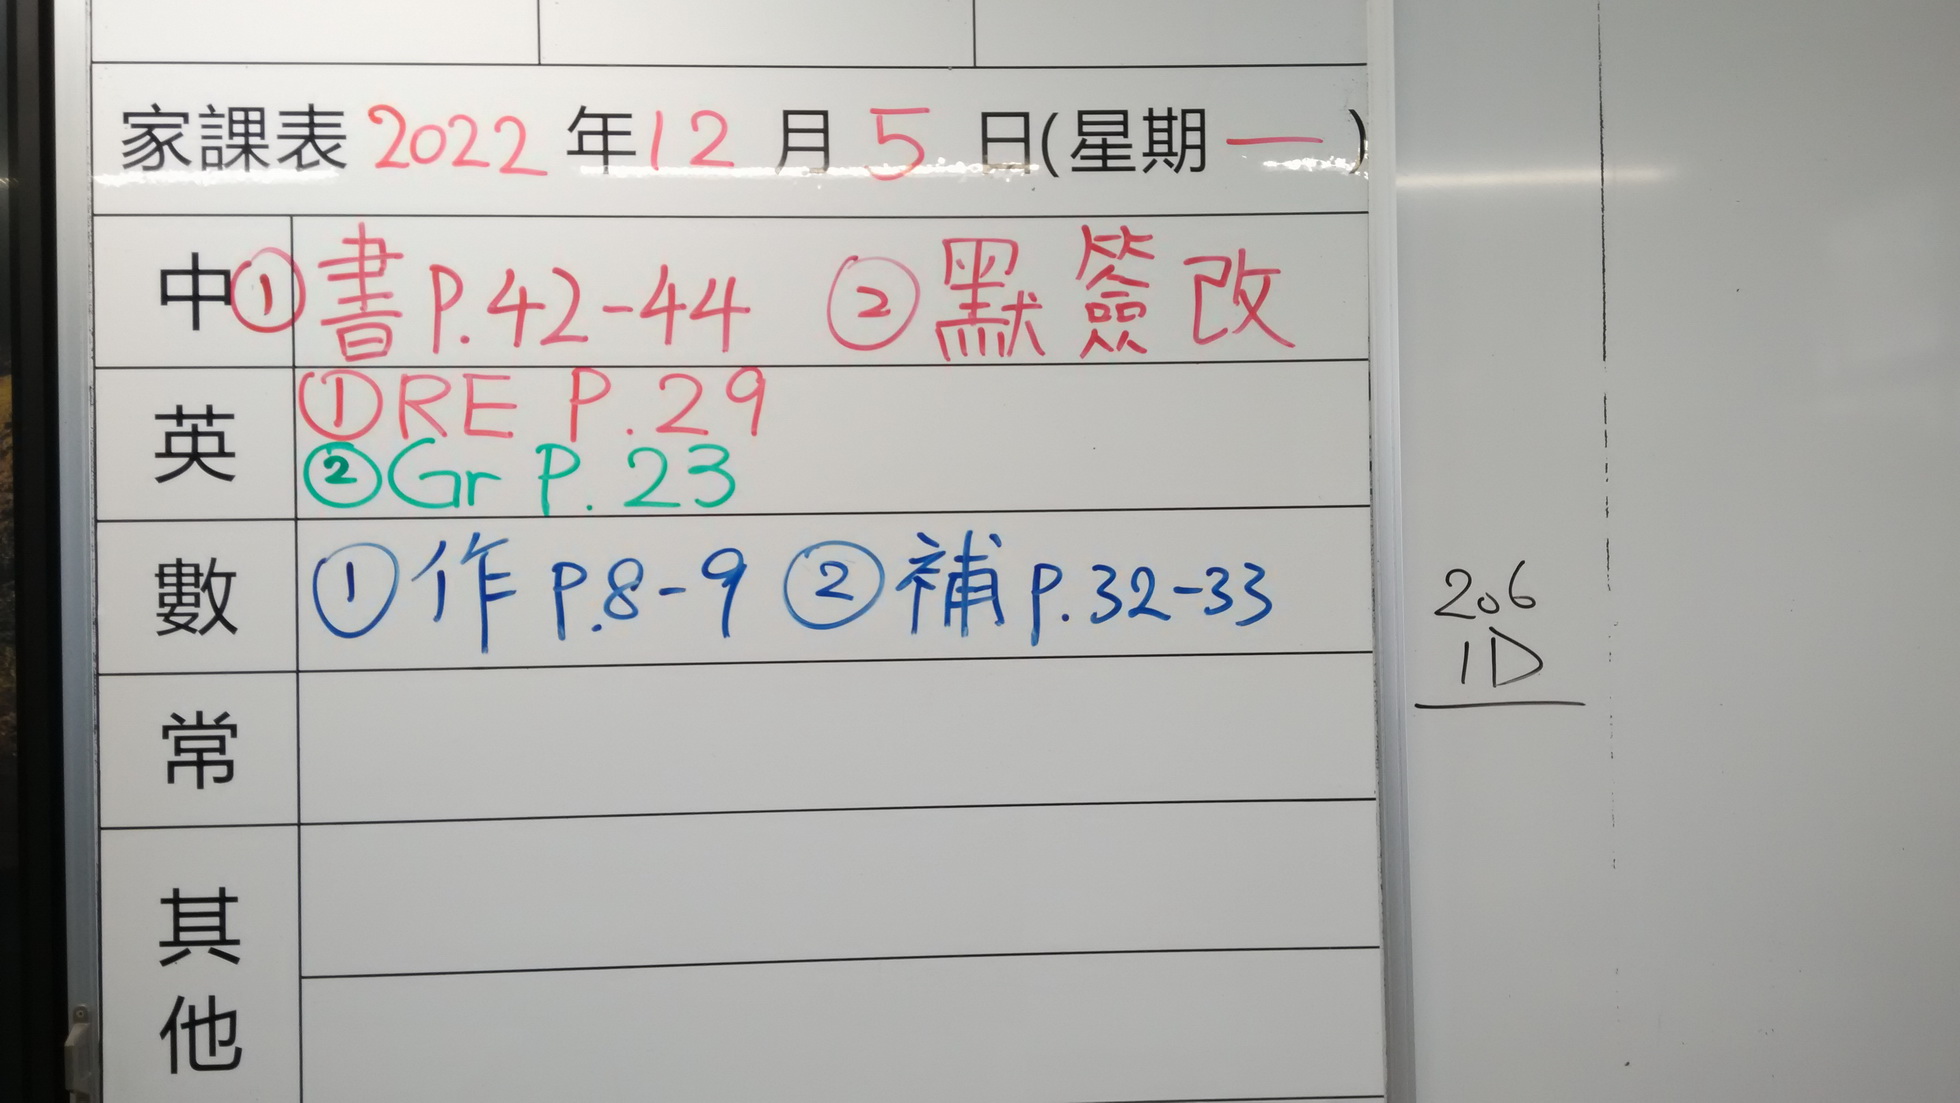 家課表 2022 年 12 月 5 日(星期一)
中 ① 書 P.42-44 ② 默簽改
英 ① RE P.29
② Gr P.23
數 ① 作 P.8-9 ② 補 P.32-33
常
其
他
206
1D